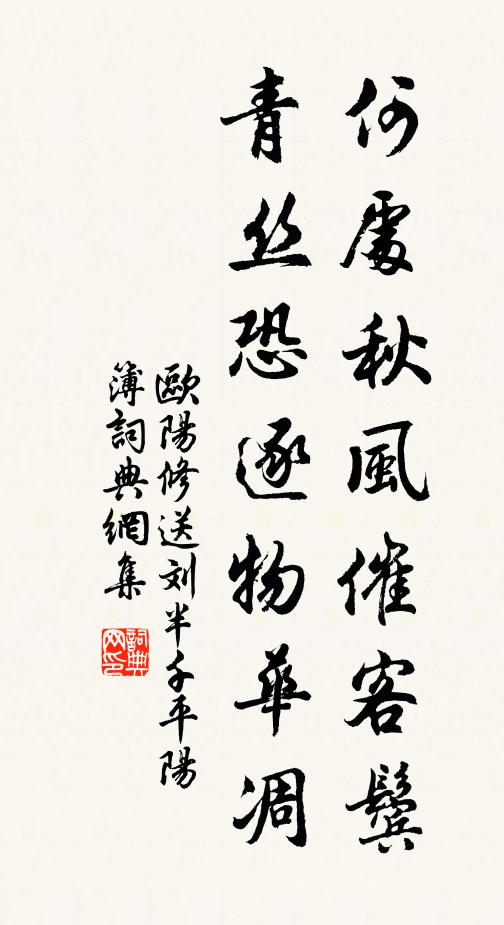 何處秋風催客鬢
青丝恐逐物華凋
歐陽修送刘半千平陽
簿詞典網集
詞典
网印